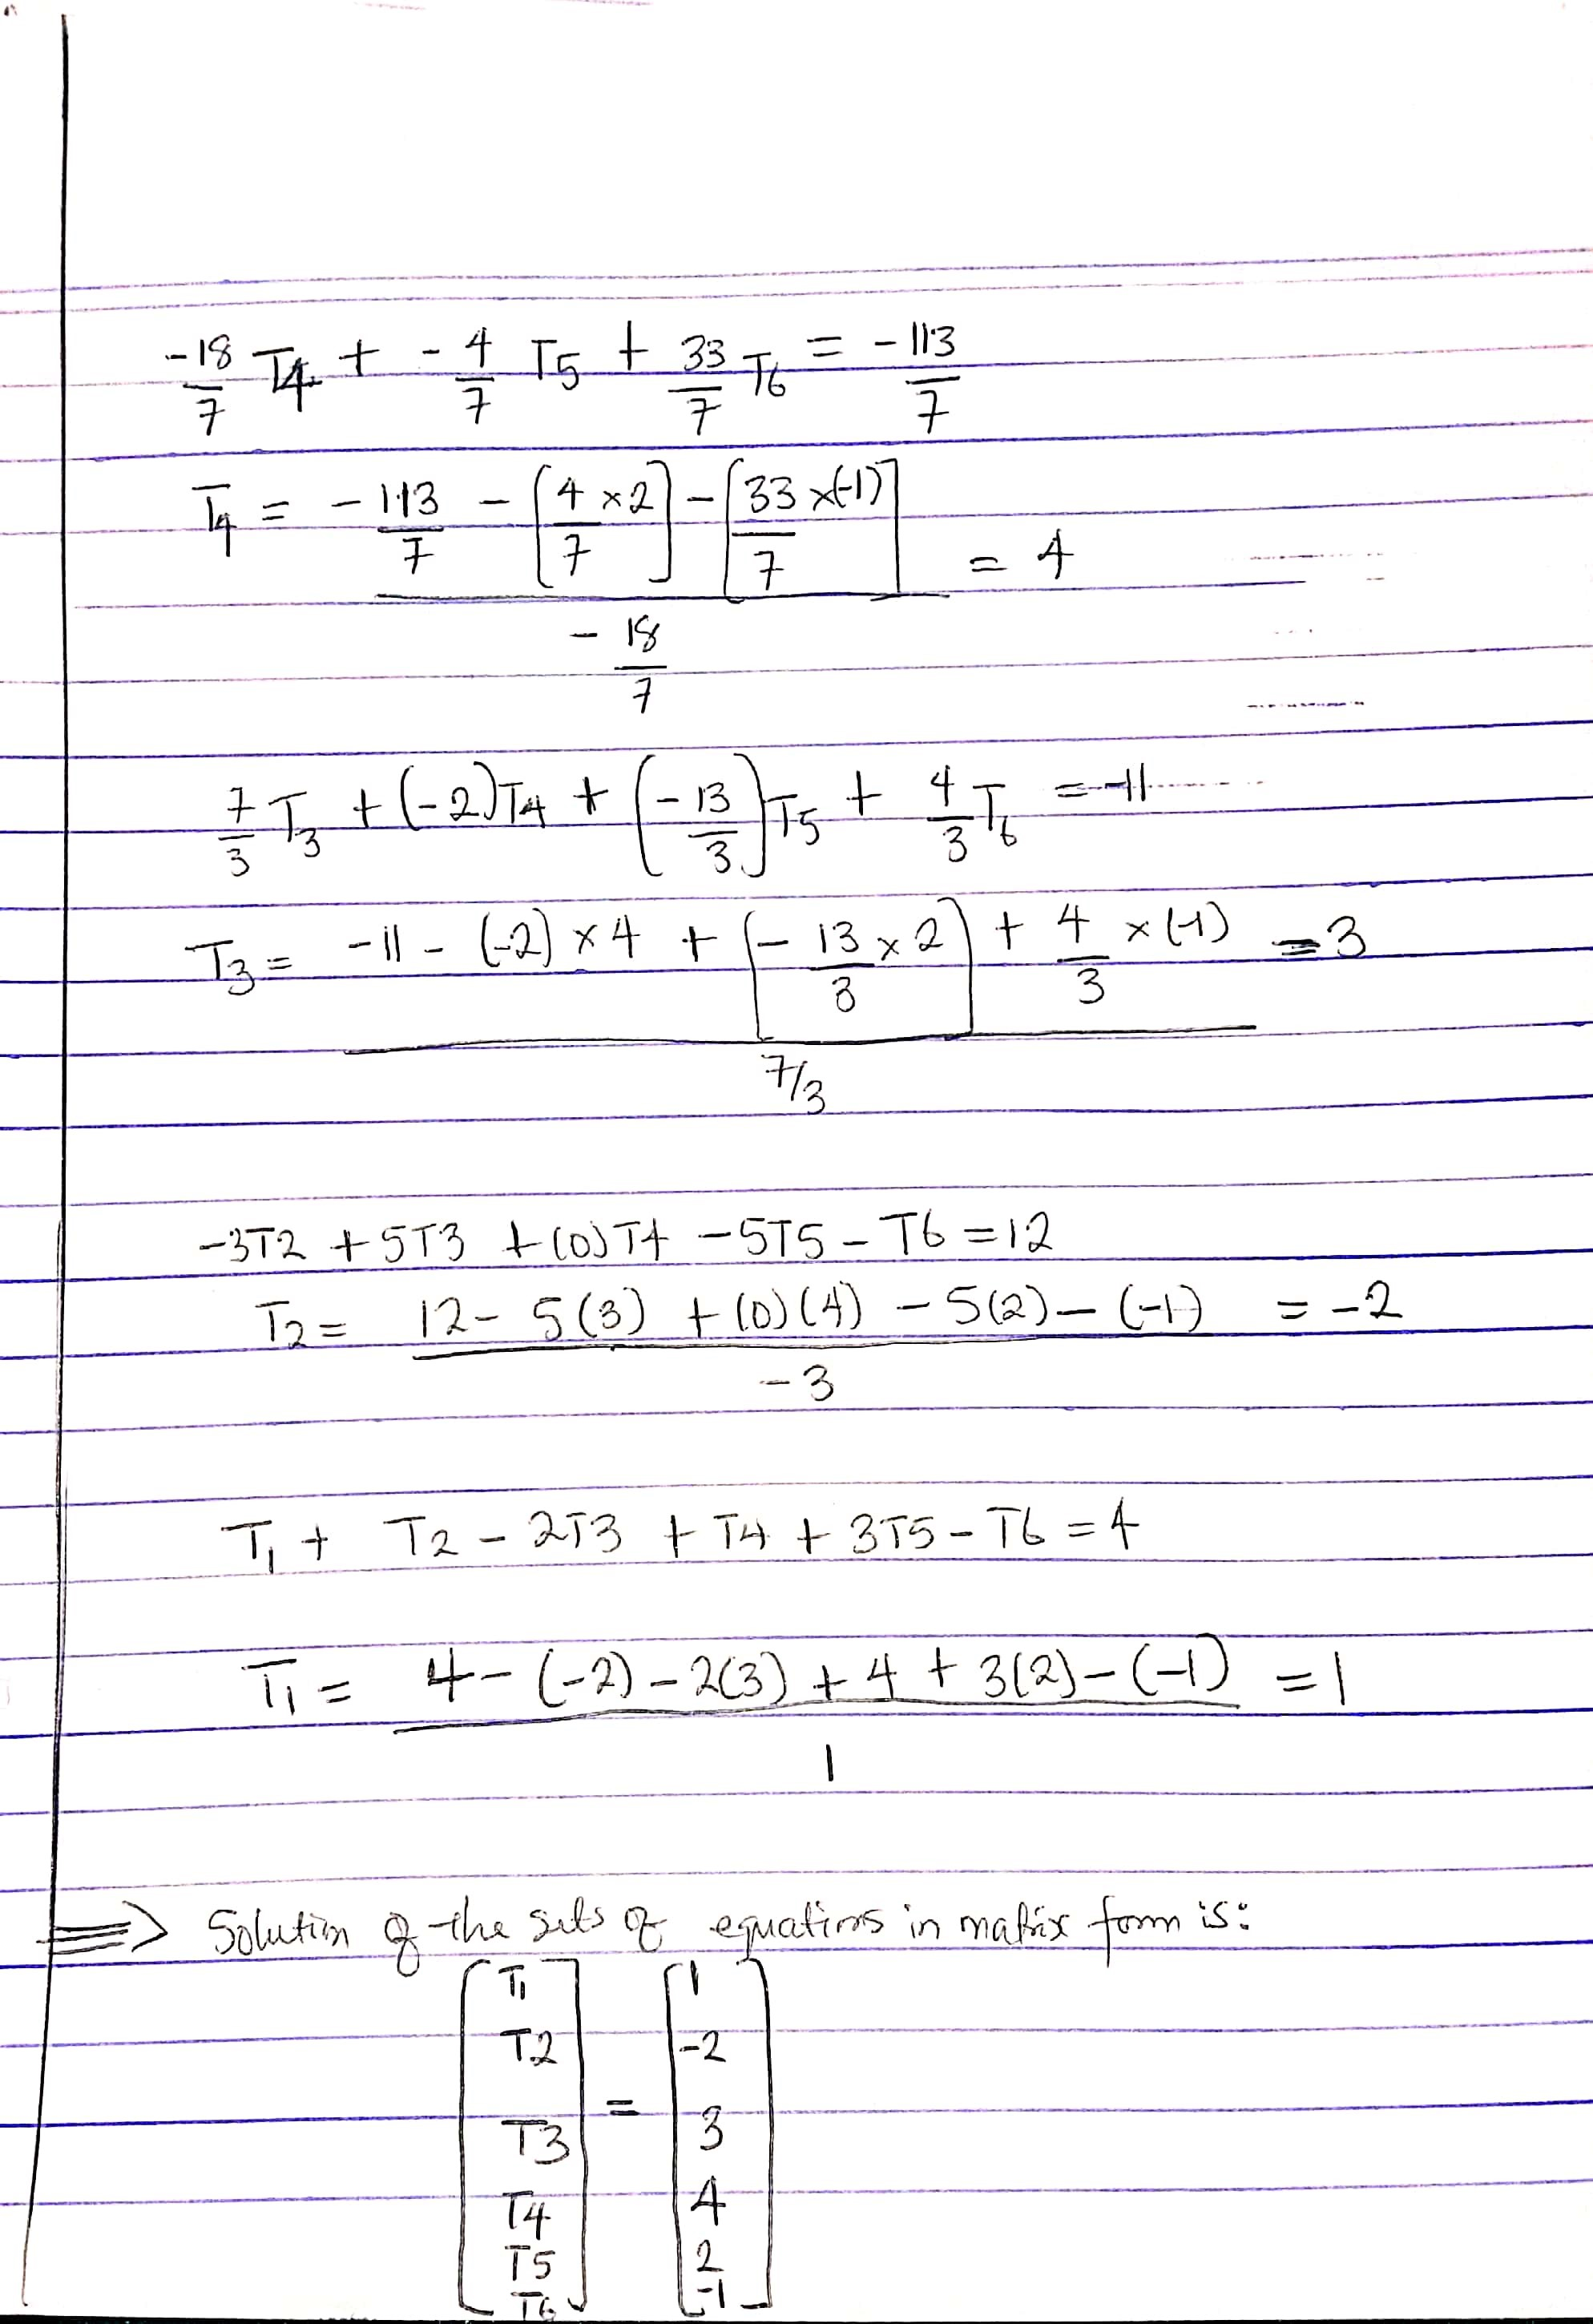 -18/7 T4 + -4/7 T5 + 33/7 T6 = -113/7
T4 = -113/7 - [4/7 ×2] - [33/7 ×(-1)] = 4
-18/7
7/3 T3 + (-2)T4 + (-13/3)T5 + 4/3 T6 = -11
T3 = -11 - (-2) × 4 + (-13/3 × 2) + 4/3 × (-1) = 3
7/3
-3T2 + 5T3 + (0)T4 - 5T5 - T6 = 12
T2 = 12 - 5(3) + (0)(4) - 5(2) - (-1) = -2
-3
T1 + T2 - 2T3 + T4 + 3T5 - T6 = 4
T1 = 4 - (-2) - 2(3) + 4 + 3(2) - (-1) = 1
1
⇒ Solution of the sets of equations in matrix form is:
T1 1
T2 -2
T3 = 3
T4 4
T5 2
T6 -1